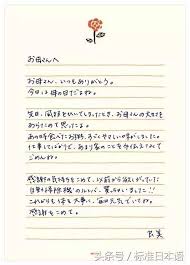 お母さんへ
お母さん、いつもありがとう。
今日は母の日だよね。
先日、風邪をひいてしまったとき、お母さんの大切さを
あらためて思ったよ。
あの時食べたお粥、すごくやさしい味がしました。
仕事してばかりで、あまり家のことを手伝えてなくて
ごめんね。
感謝の気持ちをこめて、以前から欲しがっていた
自動掃除機のルンバ、買っちゃいました!!
これからも体を大事に、毎日元気でいてね。
感謝をこめて。
头条号 / 标准日本语